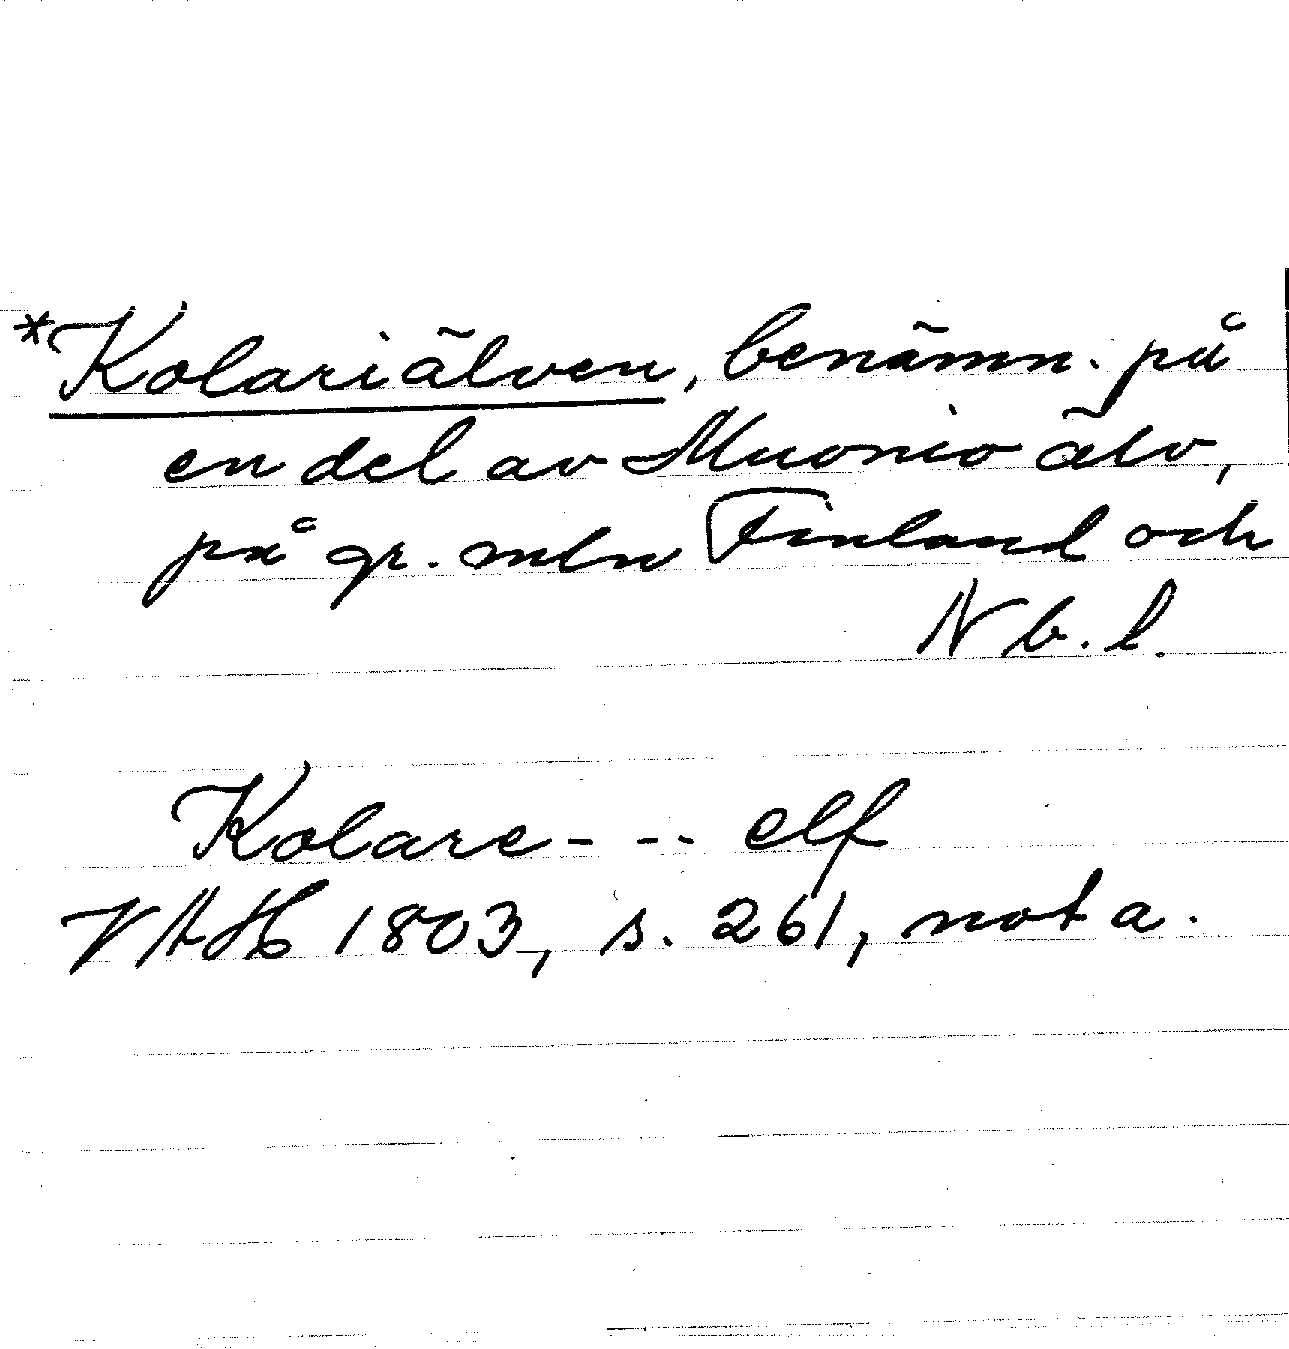 *Kolariälven, benämn. på
en del av Muonio älv,
på gr. mln Finland och
Nb. l.
Kolare - - - elf
VAH 1803, s. 261, not a.